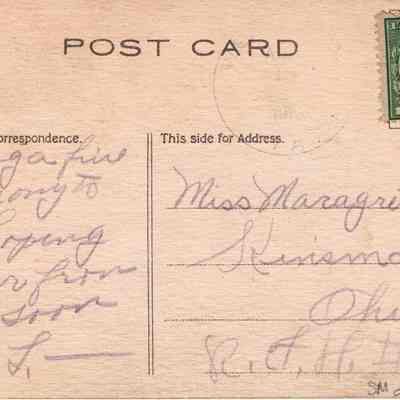 POST CARD
orrespondence.
This side for Address.
g a fine
ony to
oping
r from
soon
L.
Miss Maragre
Kinsma
Ohi
R. F.
SM